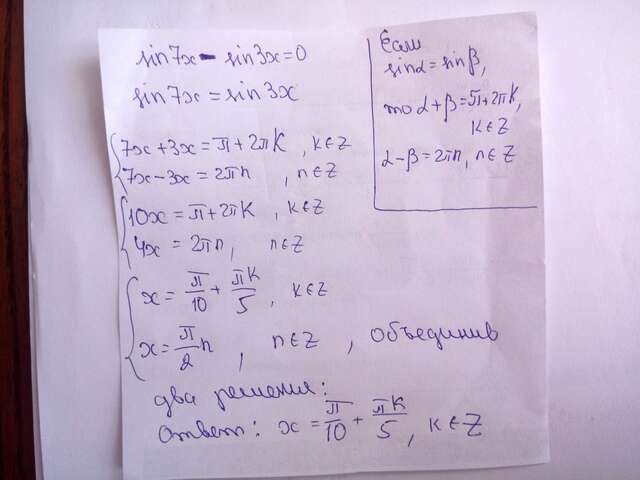 sin7x - sin3x=0
sin7x = sin3x
{7x+3x = π+2πK, k∈Z
7x-3x = 2πn, n∈Z
{10x = π+2πK, k∈Z
4x = 2πn, n∈Z
{x = π/10 + πK/5, k∈Z
x = π/2 n, n∈Z, объединив
два решения:
ответ: x = π/10 + πK/5, k∈Z
Если
sinα = sinβ,
то α+β = π+2πK,
k∈Z
α-β = 2πn, n∈Z